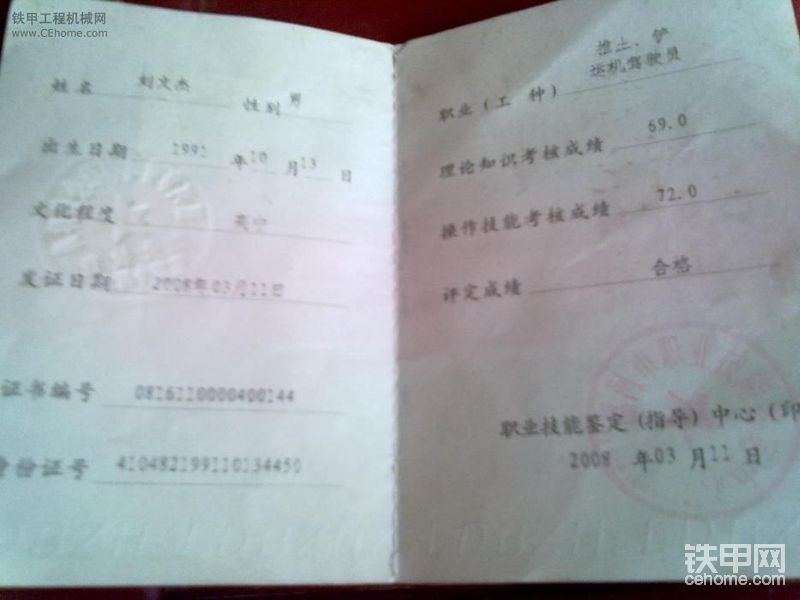 铁甲工程机械网
www.CEhome.com
姓名 刘文杰 性别 男
出生日期 1991 年 10 月 13 日
文化程度
发证日期 2008年03月11日
证书编号 0816110000400144
身份证号 410482199110134450
推土、铲
职业(工种) 运机驾驶员
理论知识考核成绩 69.0
操作技能考核成绩 72.0
评定成绩 合格
职业技能鉴定(指导)中心(印
2008 年 03 月 11 日
铁甲网
cehome.com